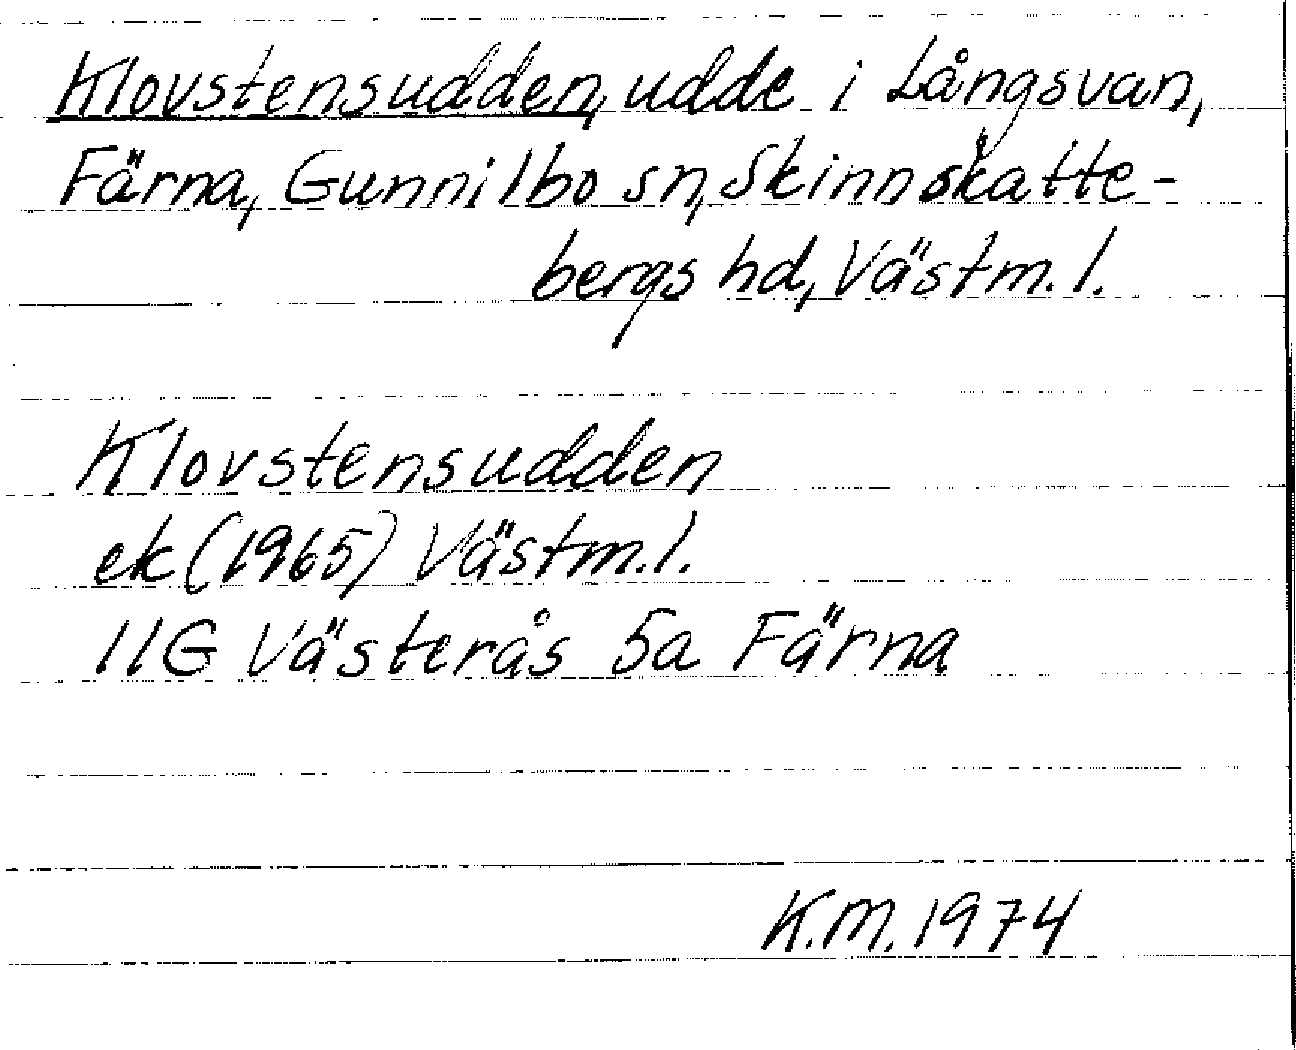 Klovstensudden, udde i Långsvan,
Färna, Gunnilbo sn, Skinnskatte-
bergs hd, Västm. l.
Klovstensudden
ek (1965) Västm. l.
11G Västerås 5a Färna
K.M. 1974